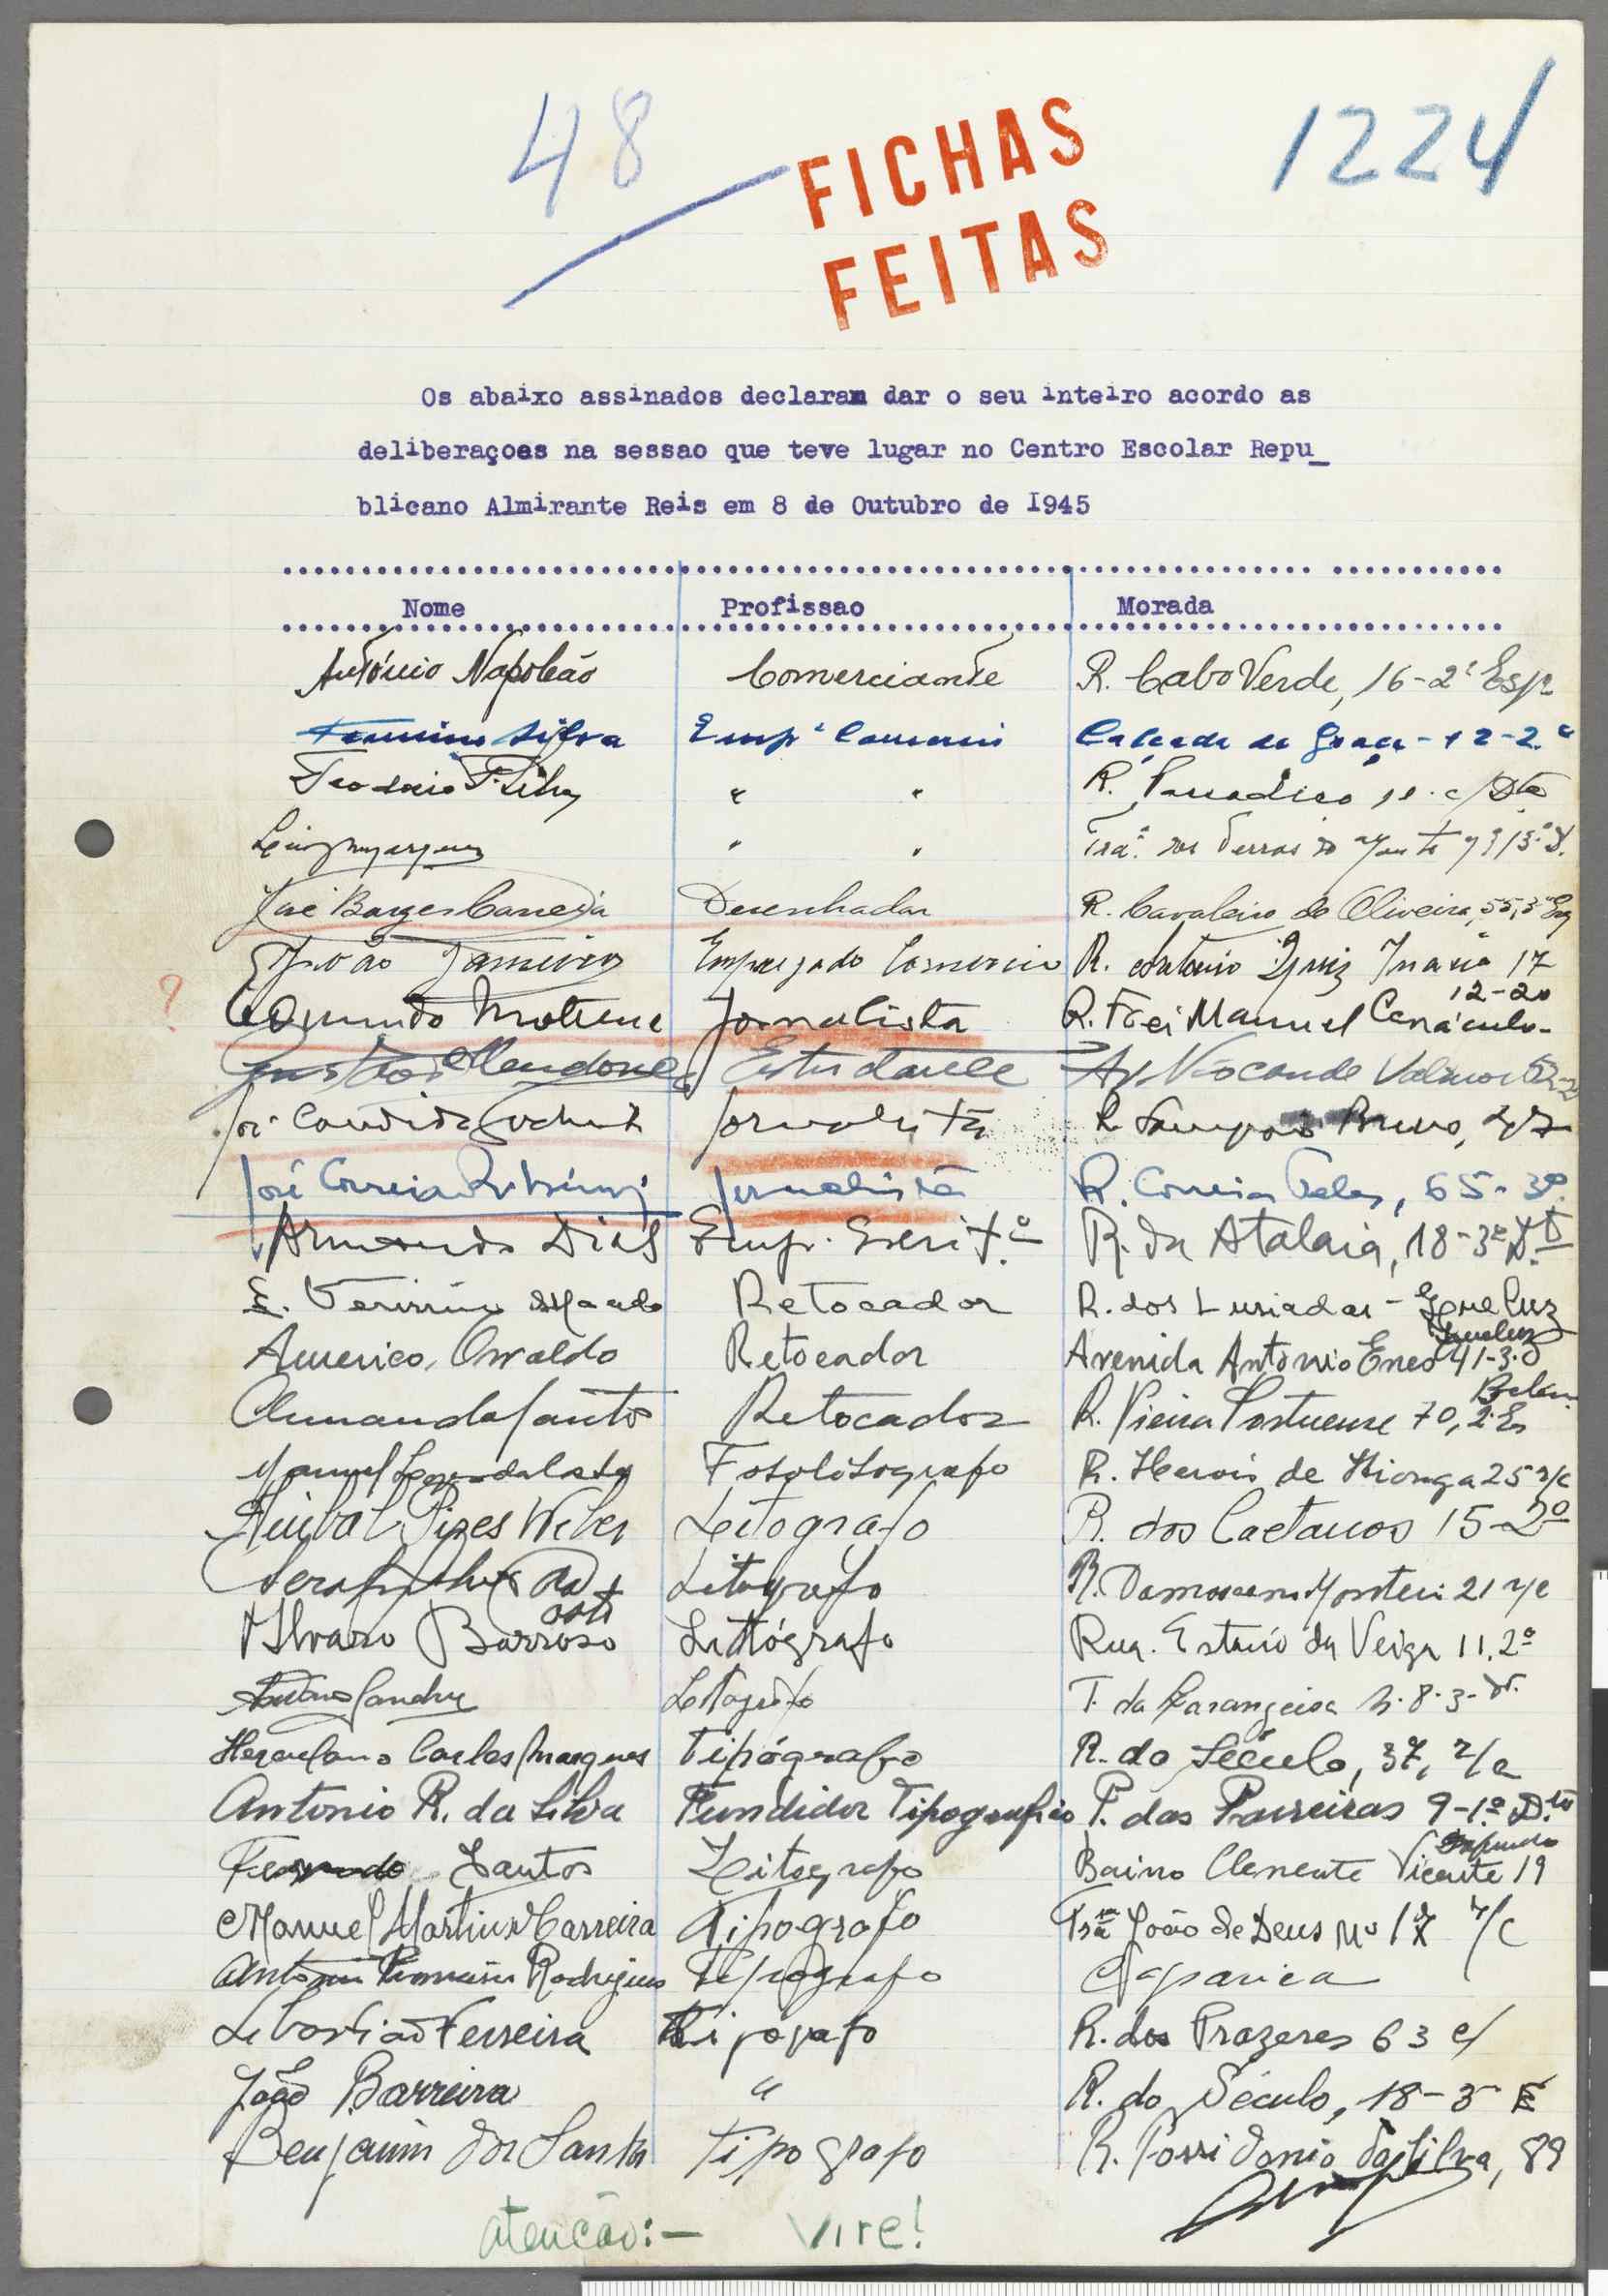 48
1224
FICHAS
FEITAS
Os abaixo assinados declaram dar o seu inteiro acordo as
deliberaçoes na sessao que teve lugar no Centro Escolar Repu_
blicano Almirante Reis em 8 de Outubro de I945
Nome Profissao Morada
António Napoleão Comerciante R. Cabo Verde, 16-2º Esqº
Silva Empº Comercio Calçada da Graça - 12-2.º
R. Paradiso
" "
José Borges Correia Desenhador R. Cavaleiro de Oliveira, 55, 3º Esq
João Empregado Comercio R. Antonio Luiz Inacio 17
12-2º
? Jornalista R. Frei Manuel Cenáculo-
Mendonça Estudante Av. Visconde Valmor
José Candido Jornalista R. Sampaio Bruno, 27
José Correia Jornalista R. Correia Teles, 65-3º
Armando Dias Emp. Escritº R. da Atalaia, 18-3º Dto
E. Retocador R. dos Lusiadas -
Americo Osvaldo Retocador Avenida Antonio Enes 41-3.º
Belem
Armando Santos Retocador R. Vieira Portuense 70, 2º Es
Manuel Fotolitografo R. Herois de Kionga 25 r/c
Anibal Pires Litografo R. dos Caetanos 15-2º
Serafim Litografo R. Damasceno Monteiro 21 r/c
Alvaro Barroso Litógrafo Rua. Estacio da Veiga 11, 2º
Litografo T. da Laranjeira
Herculano Carlos Marques Tipógrafo R. do Século, 37, r/c
Antonio R. da Silva Fundidor Tipografico P. das Parreiras 9-1º D.to
Dafundo
Fernando Santos Litografo Bairro Clemente Vicente 19
Manuel Martins Carreira Tipografo Trª João de Deus Nº 17 r/c
Antonio Rodrigues Tipografo Caparica
Sebastião Ferreira Tipógrafo R. dos Prazeres 63 c/
João Barreira " R. do Século, 18-3º E
Benjamim dos Santos Tipografo R. Possidonio da Silva, 89
atenção:— vire!